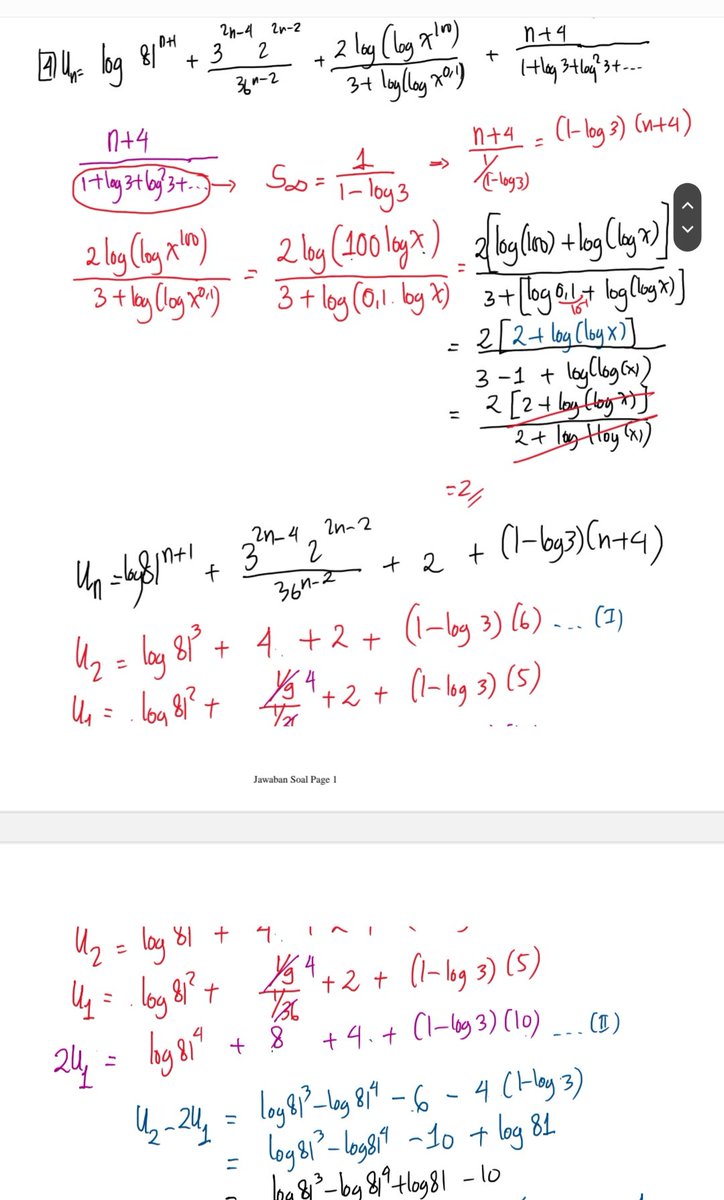 4 Uₙ = log 81ⁿ⁺¹ + (3²ⁿ⁻⁴ 2²ⁿ⁻²)/(36ⁿ⁻²) + (2 log(log x¹⁰⁰))/(3 + log(log x⁰'¹)) + (n+4)/(1+log 3+log²3+...)
(n+4)/(1+log 3+log²3+...) → S∞ = 1/(1-log 3) ⇒ (n+4)/(1/(1-log 3)) = (1-log 3)(n+4)
(2 log(log x¹⁰⁰))/(3 + log(log x⁰'¹)) = (2 log(100 log x))/(3 + log(0,1. log x)) = (2[log(100) + log(log x)])/(3+[log 0,1 + log(log x)])
10⁻¹
= (2[2 + log(log x)])/(3 - 1 + log(log(x)))
= (2[2 + log(log x)])/(2 + log(log(x)))
= 2
Uₙ = log 81ⁿ⁺¹ + (3²ⁿ⁻⁴ 2²ⁿ⁻²)/(36ⁿ⁻²) + 2 + (1-log 3)(n+4)
U₂ = log 81³ + 4 + 2 + (1-log 3)(6) ... (I)
U₁ = log 81² + (1/9)/(1/36) 4 + 2 + (1-log 3)(5)
Jawaban Soal Page 1
U₂ = log 81 + 4
U₁ = log 81² + (1/9)/(1/36) 4 + 2 + (1-log 3)(5)
2U₁ = log 81⁴ + 8 + 4 + (1-log 3)(10) ... (II)
U₂ - 2U₁ = log 81³ - log 81⁴ - 6 - 4(1-log 3)
= log 81³ - log 81⁴ - 10 + log 81
= log 81³ - log 81⁴ + log 81 - 10